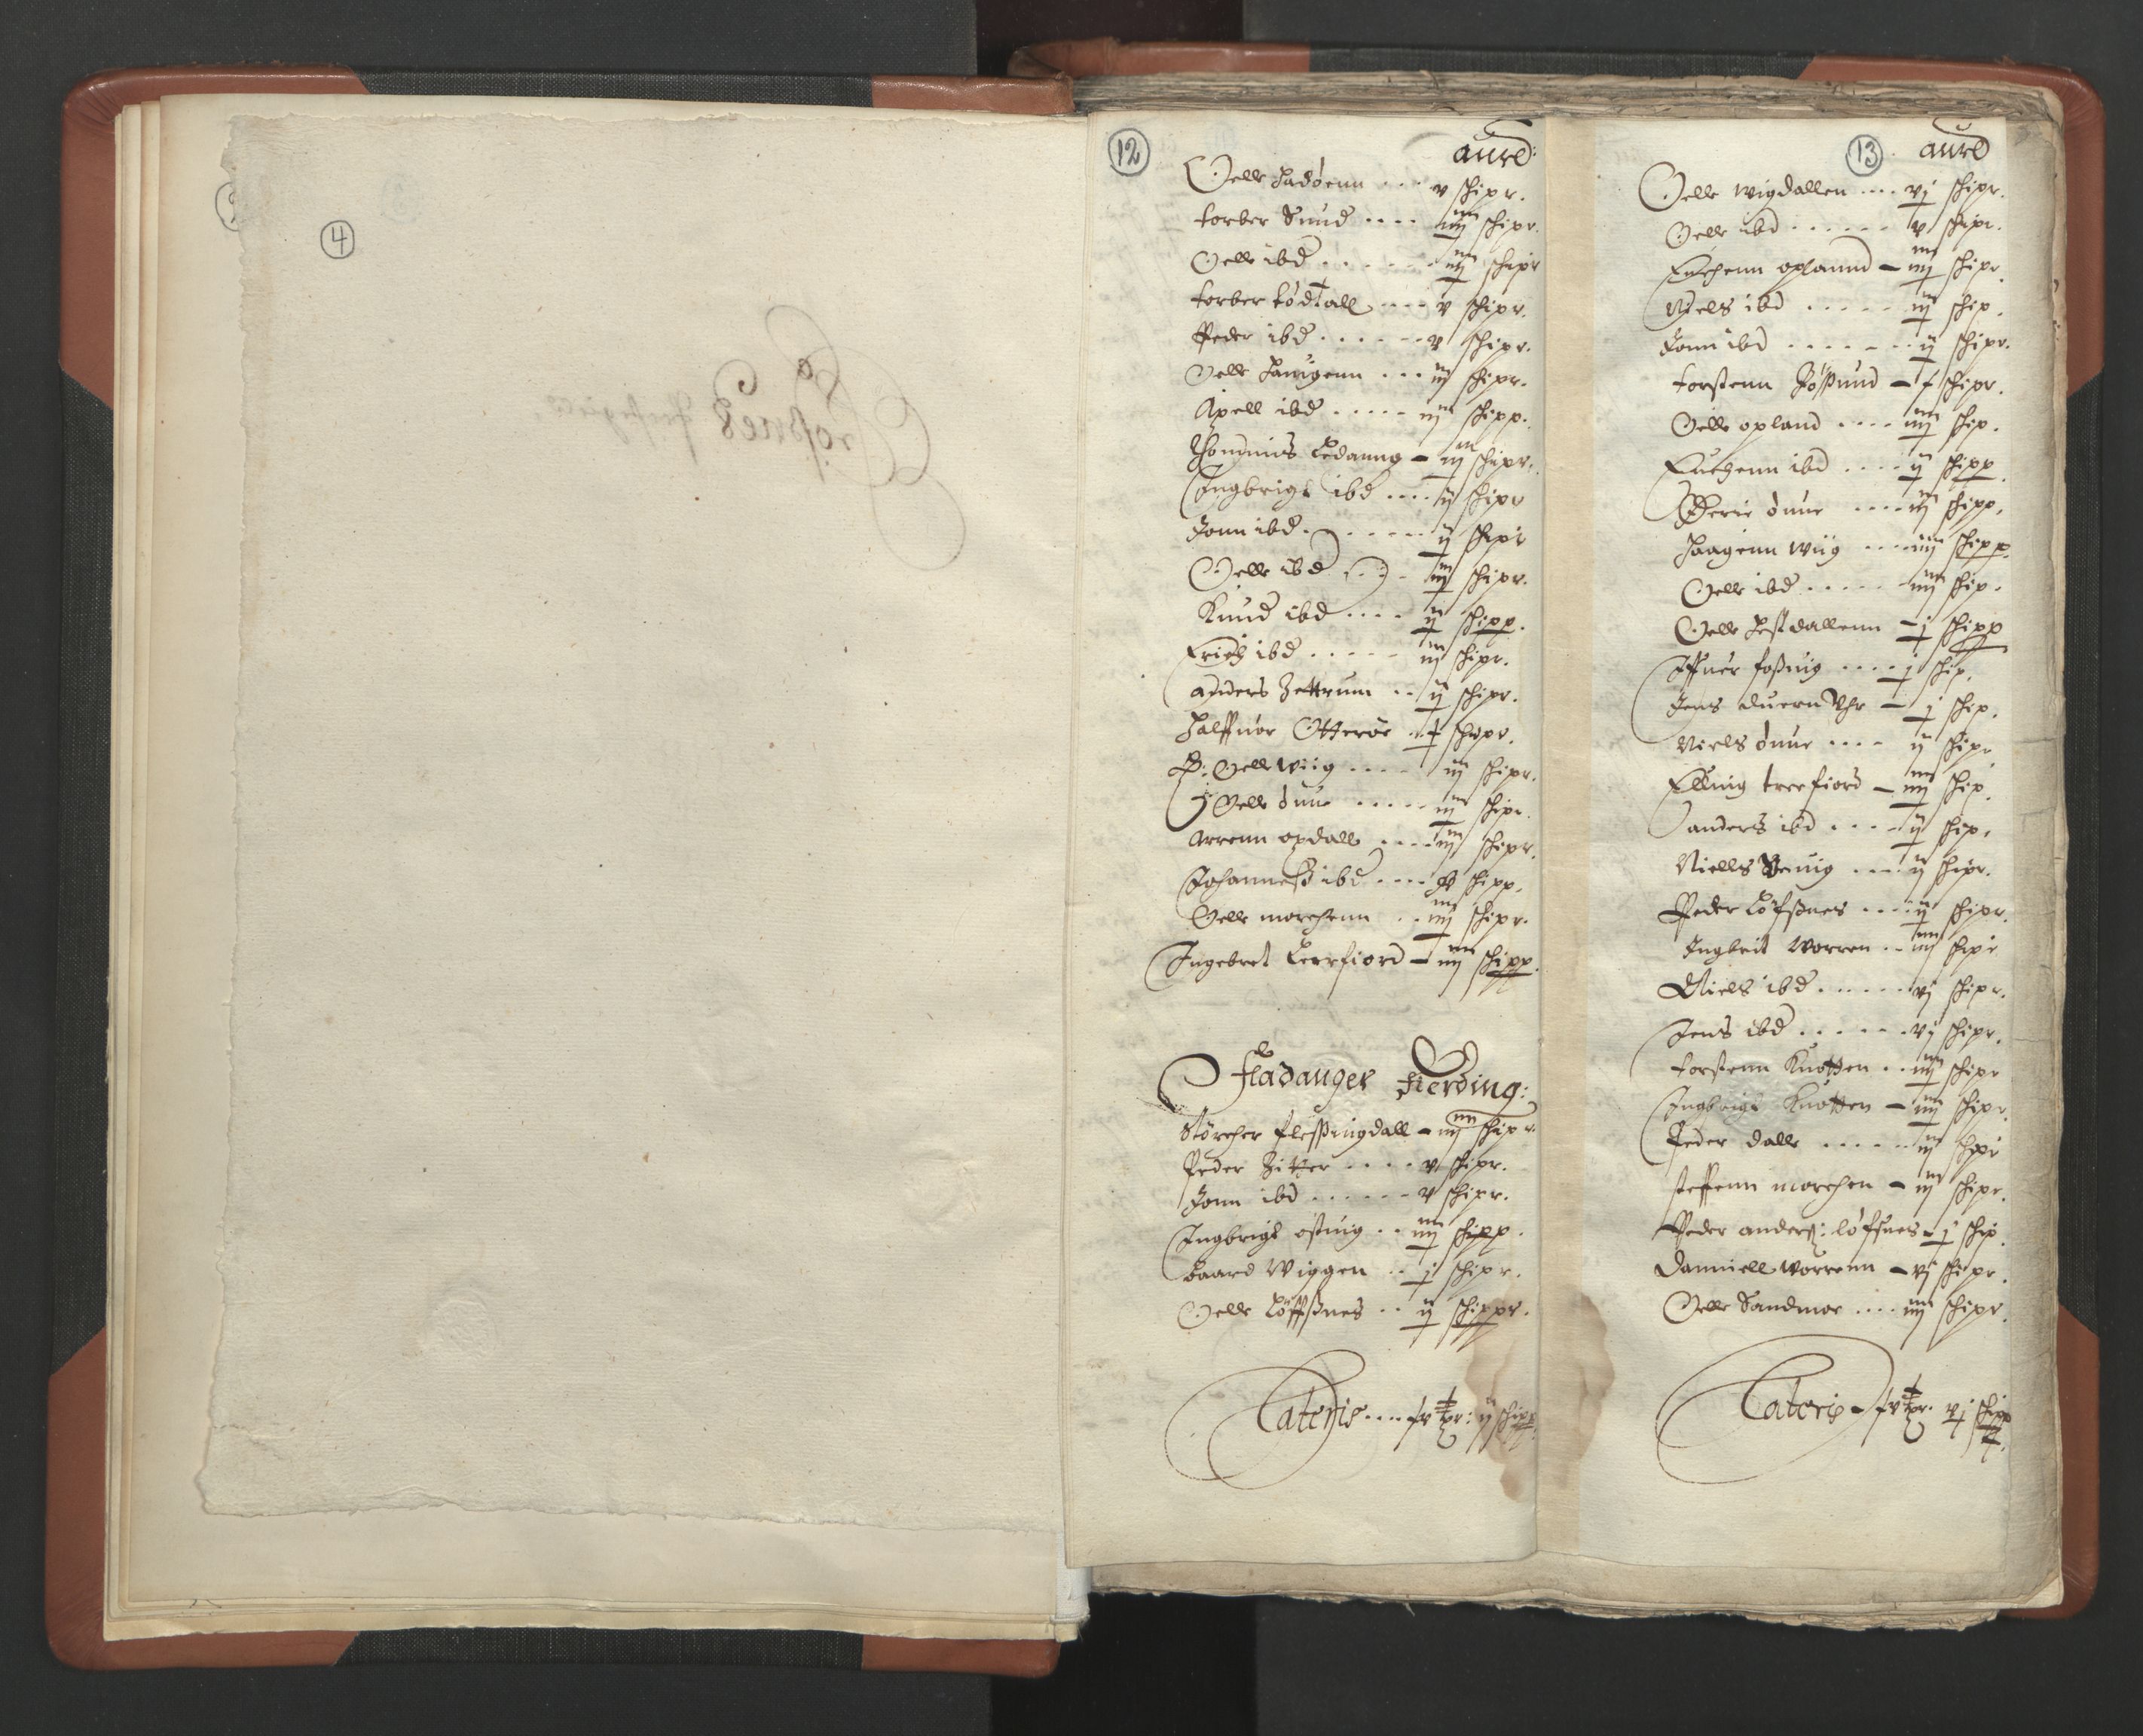 4
12
aurd:
Oelle Hadøenn .... v schipr.
torber Sund .... iiij schipr.
Oelle ibd ...... iiij schipr
torber tødtall .... v schipr.
Peder ibd ...... v schipr.
Oelle Hauigenn ... iij schipr.
Apell ibd ..... iij schipp.
Thommis Ledanng - iij schipr.
Ingbrigt ibd .... ij schipr
Jonn ibd ...... ij schipr
Oelle ibd .... iij schipr.
Knud ibd .... ij schipp.
Erich ibd ..... iij schipr.
anders Zettrum .. ij schipr.
Halffuor Otterøe .. schipr.
Oelle Wiig .... iij schipr.
Oelle duue ..... iij schipr.
Arrenn opdall .... iij schipr.
Johanneß ibd .... schipp.
Oelle morchenn .. iiij schipr.
Ingebret Leerfiord - iiij schipp.
Fladanger Fierding:
Størcher flessingdall - iiij schipr.
Peder Zitter .... v schipr.
Jonn ibd ...... v schipr.
Ingbrigt osuig .. iiij schipp.
baard Wiggen .. j schipr.
Oelle Løffßnes .. ij schippr.
Lateris .... ij schipp
13. aurd
Oelle wigdallen .... vj schipr.
Oelle ibd ...... v schipr.
opland - iiij schipr.
Niels ibd ..... iij schip.
Jonn ibd ...... ij schipr.
torstenn Jøssund - schipr.
Oelle opland .... iiij schip.
ibd .... ij schipp.
duue .... iij schipp.
Haagenn wiig .... iiij schipp.
Oelle ibd ..... iiij schip.
Oelle Lestdallenn - j schipp
Iffuer foßuig .... j schip.
Jens - j schip.
Niels duue .... ij schipr
Elling treefiord - iiij schip.
anders ibd .... ij schip.
Niells .... ij schipr.
Peder Løfßnes .... ij schipr.
Ingbrit Worren .. iiij schipr
Niels ibd ..... vj schipr.
Jens ibd ...... vj schipr.
torstenn Knotten .. iiij schipr
Ingbrigt Knotten - iiij schipr.
Peder dalle ..... iij schipr
steffenn morchen - iij schipr.
Peder anderß: løfsnes - j schip.
Danniell worrenn - vj schipr.
Oelle Sandmoe .... iiij schipr.
Lateris - vj schipp